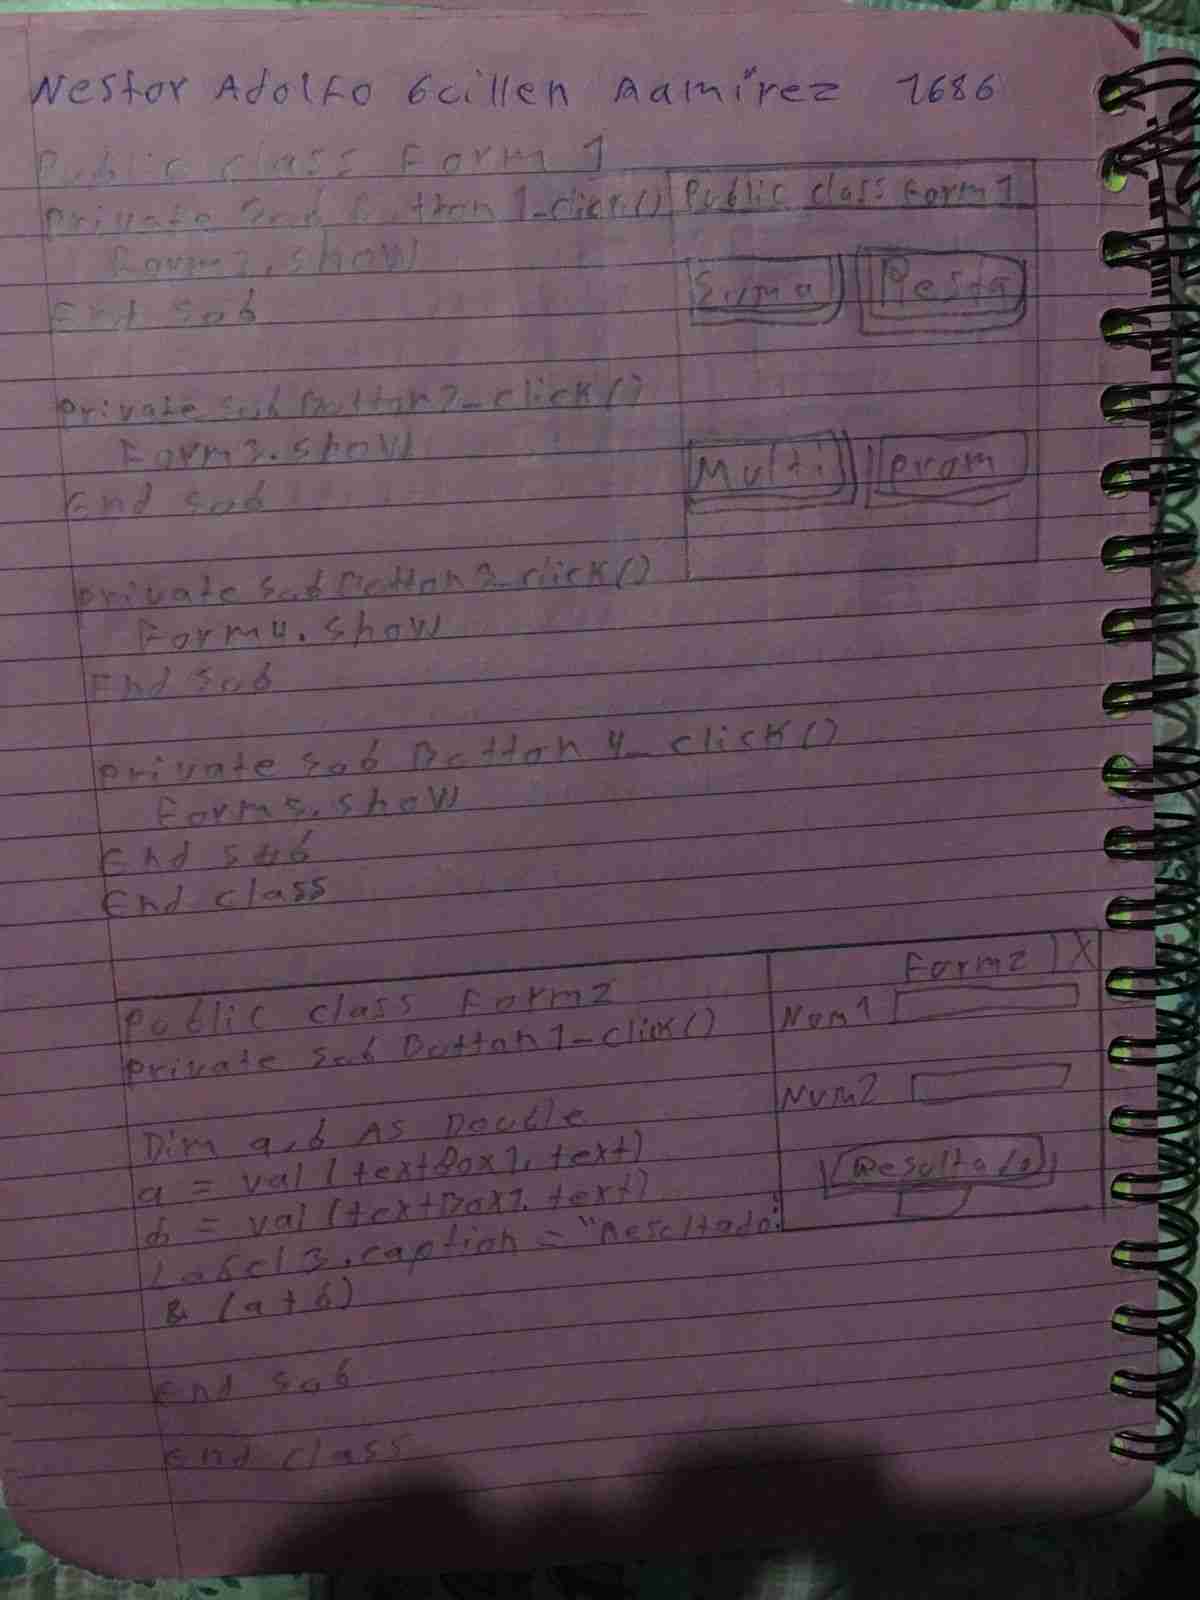 Nestor Adolfo Gcillen Ramirez 1686
Public class Form 1
Private Sub Button 1_click()
Form2.show
End sub
Private sub Button2_click()
Form3.show
End sub
Private sub Button3_click()
Form4.show
End sub
Private sub Button 4_click()
Form5.show
End sub
End class
Public class Form1
Suma
Resta
Multi
Prom
Public class Form2
Private sub Button1_click()
Dim a,b As Double
a = val (textBox1.text)
b = val (textBox2.text)
Label3.caption = "Resultado:
& (a+b)
End sub
End class
Form2 X
Num1
Num2
Resultado